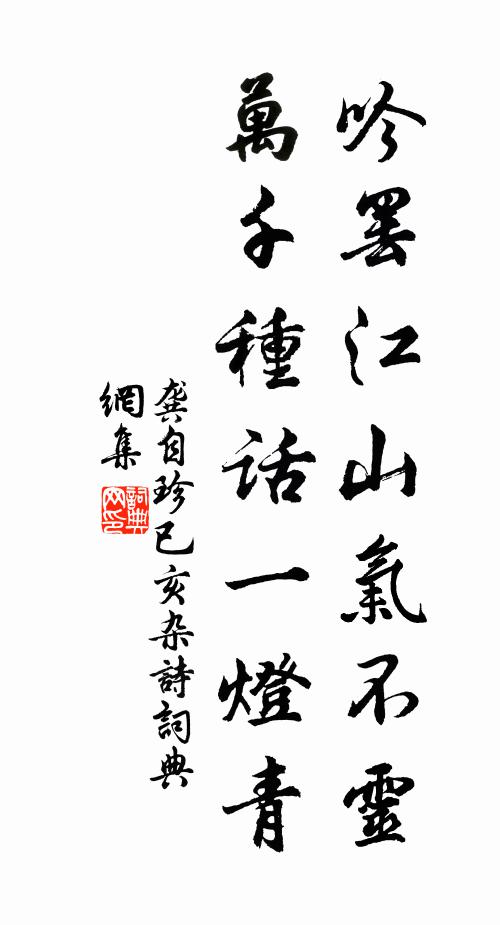 吟罷江山氣不靈
萬千種話一燈青
龔自珍已亥杂詩詞典
網集
詞典
网印